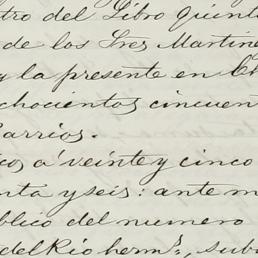 tro del Libro quint
de los Sres Martine
y la presente en Ch
chocientos cincuen
Barrios.
cos, a' veinte y cinco
nta y seis: ante m
blico del numero
del Rio herms, sub